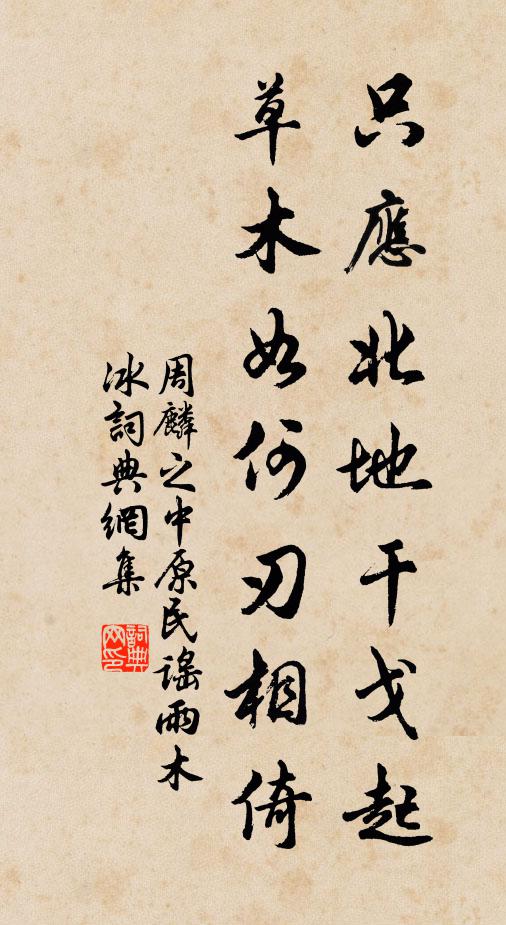 只應北地干戈起
草木如何刃相倚
周麟之中原民謠雨木
冰詞典網集
詞典
网印